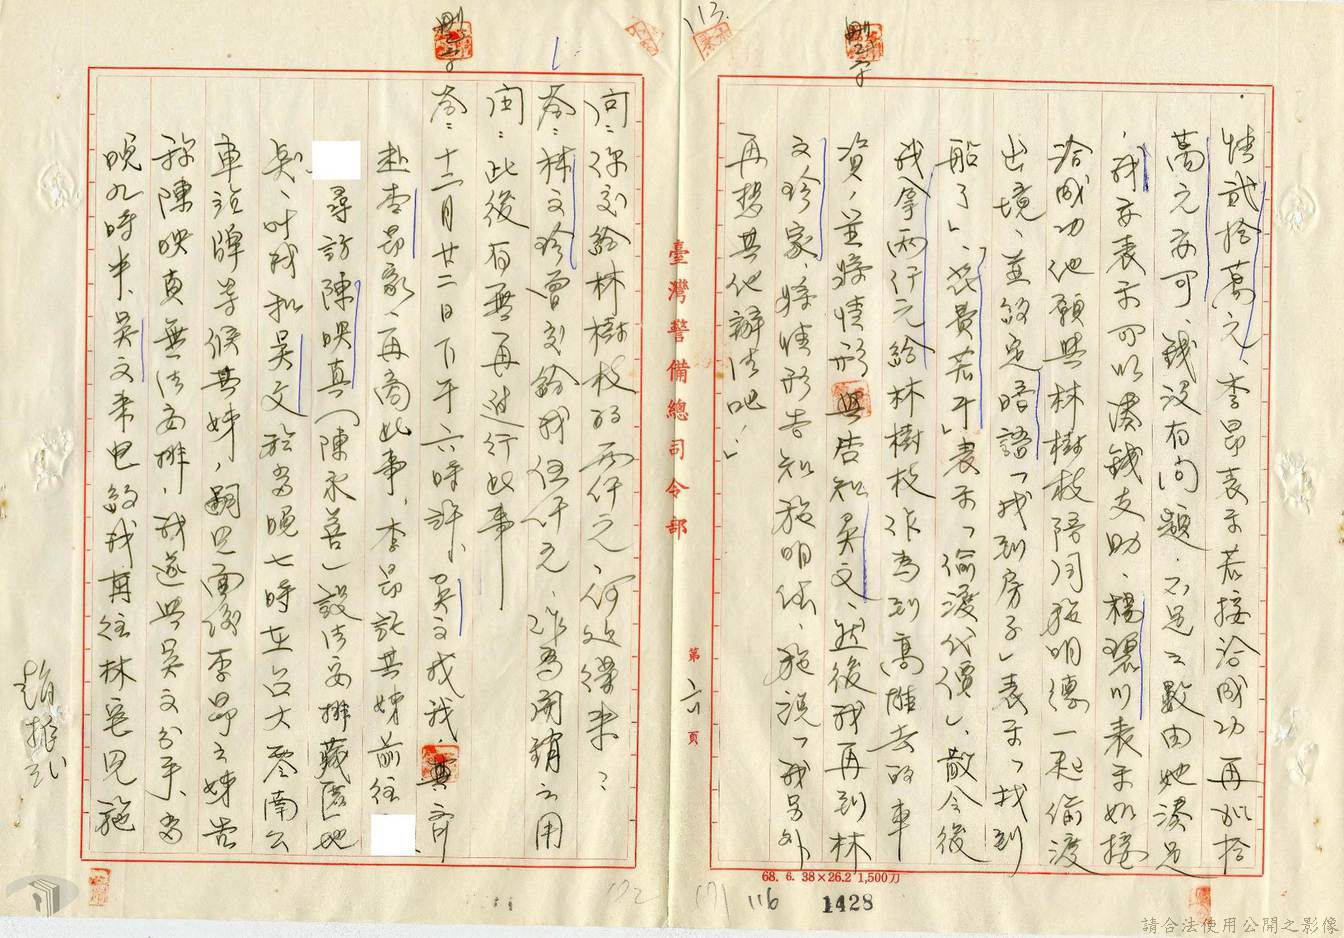 113.
刪乙字
情貳拾萬元、李昂表示若接洽成功再加拾
萬元亦可、錢沒有問題、不足之數由她湊足
、我亦表示可以湊錢支助、楊璱川表示如接
洽成功他願與林樹枝陪同施明德一起偷渡
出境、並約定暗語「找到房子」表示「找到
船了」、「裝費若干」表示「偷渡代價」、散會後
我拿兩仟元給林樹枝作為到高雄去的車
資、並將情形與告知吳文、然後我再到林
文珍家、將情形告知施明德、施說「我另外
再想其他辦法吧!」
臺灣警備總司令部
第六頁
刪乙字
問:你交給林樹枝的兩仟元、何處得來:
答:林文珍曾交給我伍仟元、作為開銷之用
問:此後有無再進行此事
答:十二月廿二日下午六時許、吳文找我、齊
赴李昂家、再商此事、李昂託其姊前往
尋訪陳映真(陳永善)設法安排藏匿地
點、叫我和吳文於當晚七時在台大雲南公
車站牌等候其姊,嗣見面後李昂之姊告
稱陳映真無法安排、我遂與吳文分手、當
晚九時半、吳文來電約我再往林宅見施
趙振貳
68. 6. 38×26.2 1,500刀
172
171
116
1428
請合法使用公開之影像